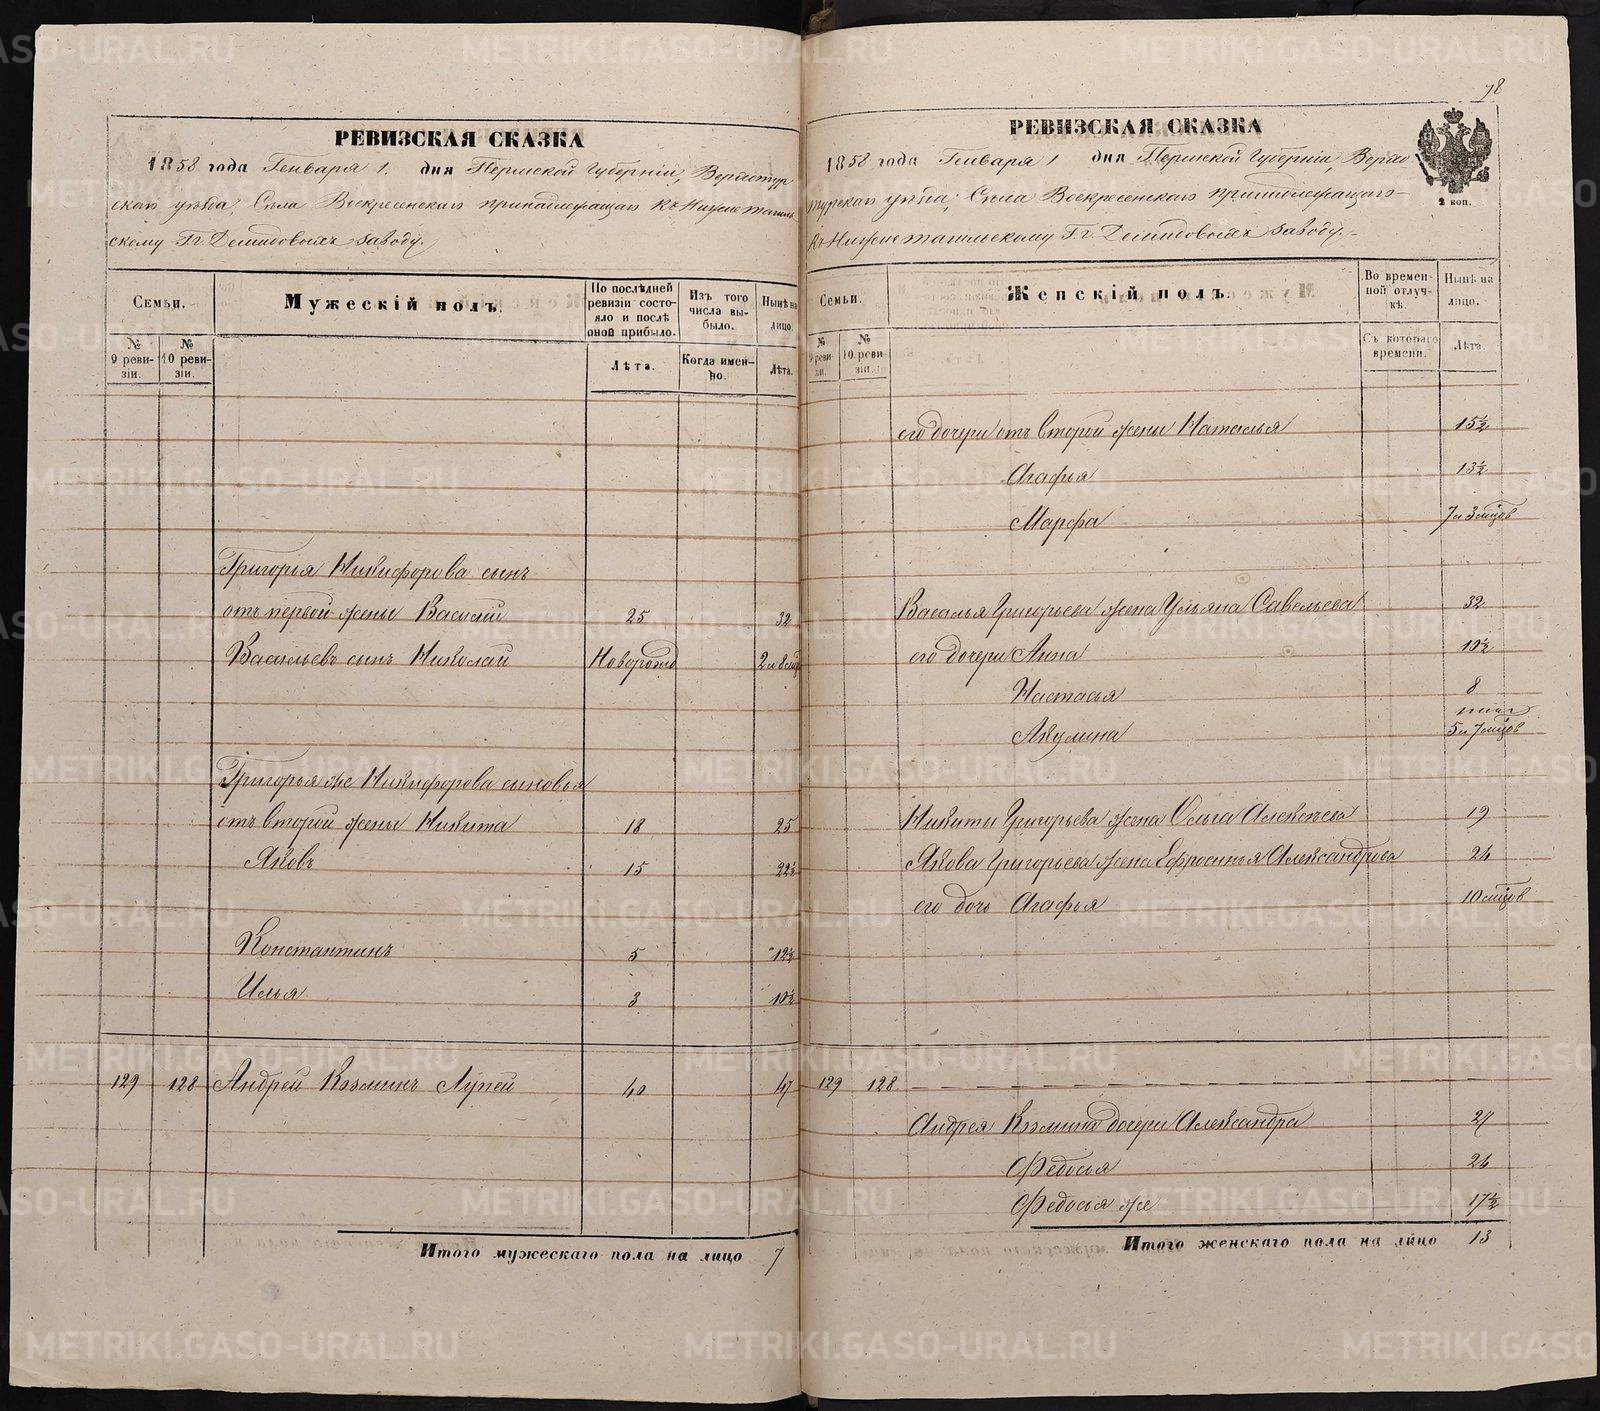 РЕВИЗСКАЯ СКАЗКА
1858 года Генваря 1. дня Пермской Губерніи, Верхотур
скаго уѣзда, Села Воскресенскаго принадлежащаго къ Нижнетагиль
скому Гг. Демидовыхъ заводу.
Семьи.
Мужескій полъ.
По послѣдней ревизіи состояло и послѣ оной прибыло.
Изъ того числа выбыло.
Нынѣ на лицо.
№ 9 ревизіи.
№ 10 ревизіи.
Лѣта.
Когда именно.
Лѣта.
Григорья Никифорова сынъ
отъ первой жены Василій 25 32
Васильевъ сынъ Николай Новорожд 2 и 8 мц
Григорья же Никифорова сыновья
отъ второй жены Никита 18 25
Яковъ 15 22½
Константинъ 5 12½
Илья 3 10½
129 128 Андрей Козминъ Лупей 40 47
Итого мужескаго пола на лицо 7
78
РЕВИЗСКАЯ СКАЗКА
1858 года Генваря 1 дня Пермской Губерніи, Верхо
турскаго уѣзда, Села Воскресенскаго принадлежащаго
къ Нижнетагильскому Гг. Демидовыхъ заводу.
2 коп.
Семьи.
Женскій полъ.
Во временной отлучкѣ.
Нынѣ на лицо.
№ 9 ревизіи.
№ 10 ревизіи.
Съ котораго времени.
Лѣта.
его дочери отъ второй жены Наталья 15½
Агафья 13½
Марфа 7 и 3 мцов
Василья Григорьева жена Ульяна Савельева 32
его дочери Анна 10½
Настасья 8
Акулина 5 и 7 мцов
Никиты Григорьева жена Ольга Алексѣева 19
Якова Григорьева жена Ефросинья Александрова 24
его дочь Агафья 10 мцов
129 128
Андрея Козмина дочери Александра 27
Федосья 24
Федосья же 17½
Итого женскаго пола на лицо 13
METRIKI.GASO-URAL.RU